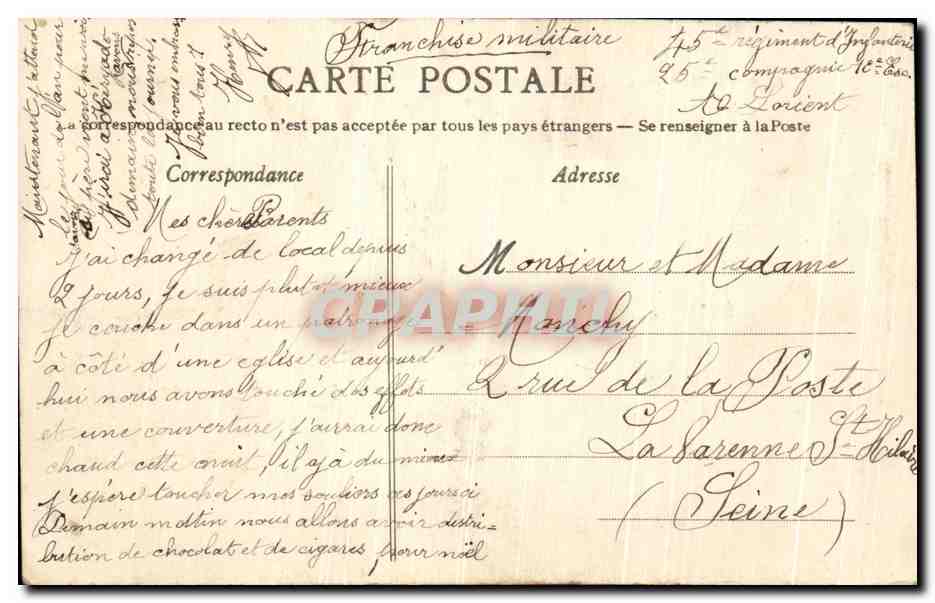 Franchise militaire
45e régiment d'Infanterie
25e compagnie 10e Esc.
à Lorient
CARTE POSTALE
La correspondance au recto n'est pas acceptée par tous les pays étrangers — Se renseigner à la Poste
Correspondance
Adresse
Mes chers Parents
J'ai changé de local depuis
2 jours, je suis plutot mieux
je couche dans un patronage
à côté d'une eglise et aujourd'
hui nous avons touché des effets
et une couverture, j'aurrai donc
chaud cette nuit, il y à du mieux
j'espère toucher mes souliers ces jours ci
Demain matin nous allons avoir distri-
bution de chocolat et de cigares, pour noël
Maintenant j'attend
le jour de l'an pour
J'irai à
demain nous
toute la
Je vous embrasse
bien tous
Henry
Monsieur et Madame
Manchy
2 rue de la Poste
La Varenne St Hilaire
(Seine)
CPAPHIL